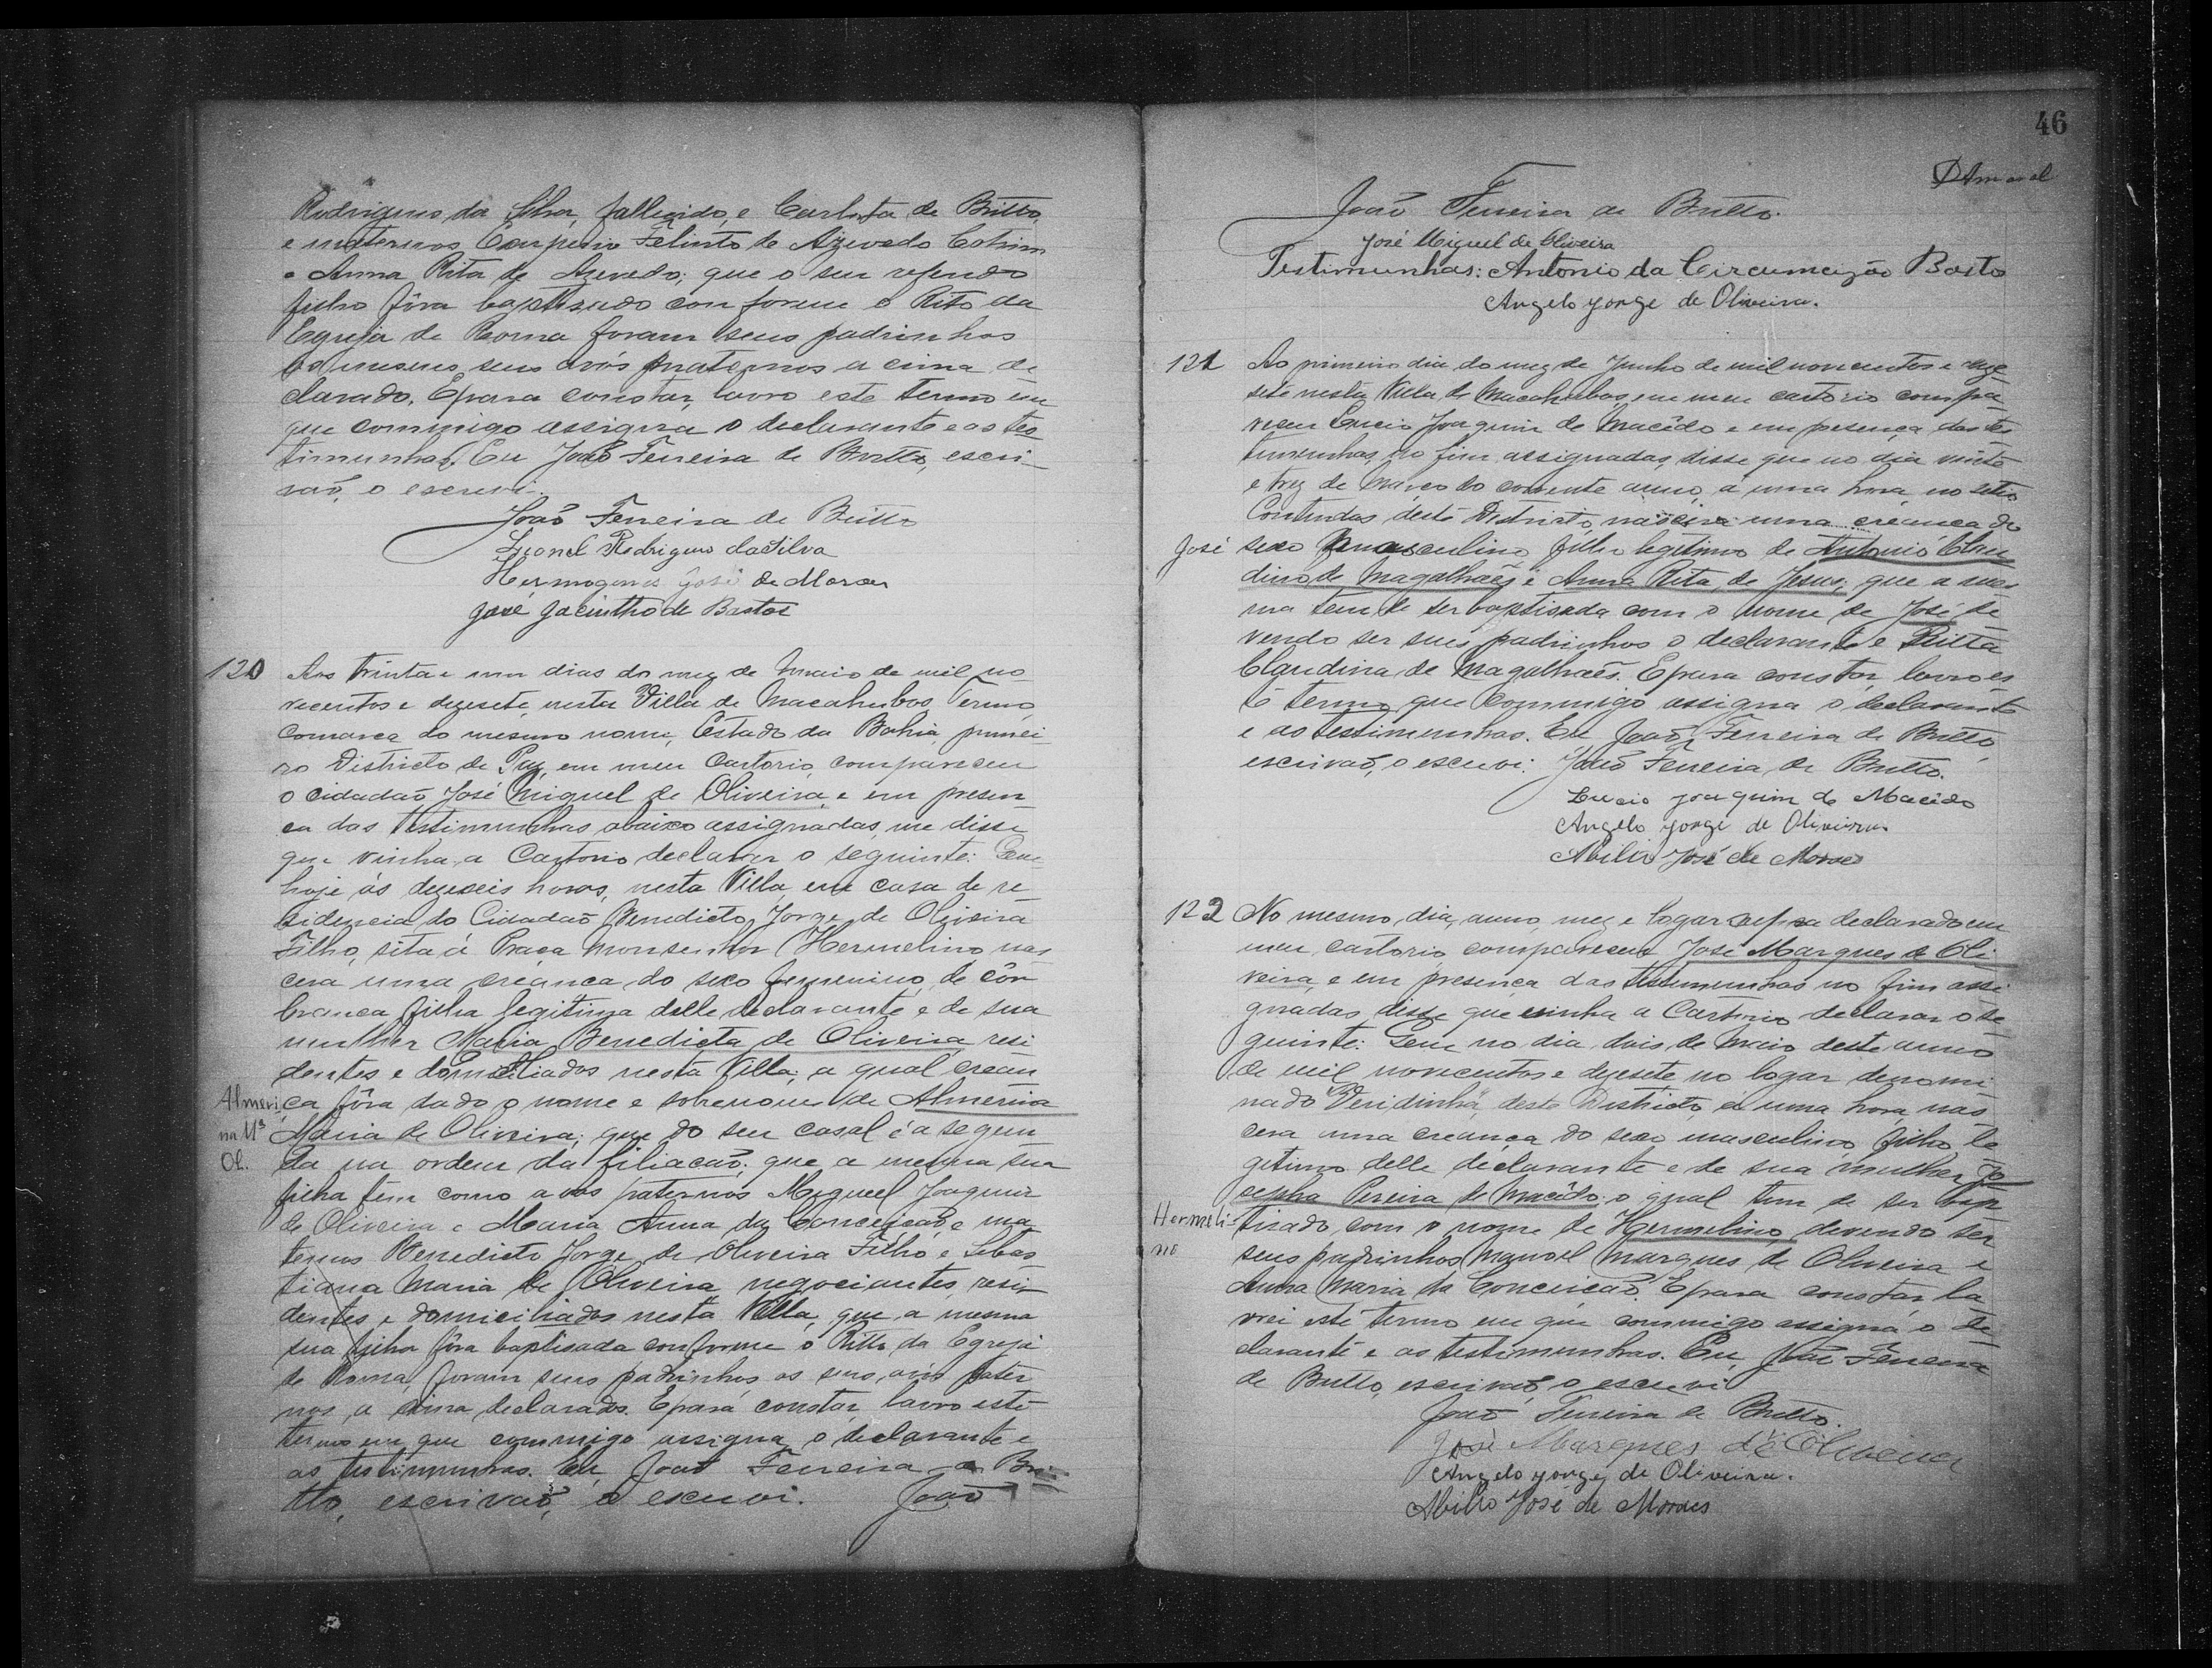 Rodrigues da Silva, fallecido, e Carlota de Britto,
e maternos Felinto de Azevedo Cotrim
e Anna Rita de Azevedo; que o seu referido
filho fôra baptisado conforme o Rito da
Egreja de Roma foram seus padrinhos
os mesmos seus avós paternos a cima de
clarado. E para constar, lavro este termo em
que commigo assigna o declarante e as tes
timunhas. Eu João Ferreira de Britto, escri-
vaõ, o escrevi.
João Ferreira de Britto
Leonel Rodrigues da Silva
Hermogenes José de Moraes
José Jacintho de Bastos
120 Aos trinta e um dias do mez de Maio de mil no
vecentos e dezesete, nesta Villa de Macahubas, Termo,
Comarca do mesmo nome, Estado da Bahia, primei-
ro Districto de Paz, em meu Cartorio, compareceu
o cidadaõ José Miguel de Oliveira, e em presen
ça das testimunhas, abaixo assignadas, me disse
que vinha a Cartorio declarar o seguinte: Que
hoje ás dezeseis horas, nesta Villa em casa de re
sidencia do Cidadaõ Benedicto Jorge de Oliveira
Filho, sita á Praça Monsenhor Hermelino nas
cera uma creança do sexo femenino, de côr
branca filha legitima delle declarante e de sua
mulher Maria Benedicta de Oliveira, resi
dentes e domiciliados nesta Villa; a qual crean
Almeri- ça fôra dado o nome e sobrenome de Almerina
na Mª Maria de Oliveira; que do seu casal é a segun
Ol. da na ordem da filiacaõ; que a mesma sua
filha tem como avós paternos Miguel Joaquim
de Oliveira e Maria Anna da Conceiçaõ, e ma
ternos Benedicto Jorge de Oliveira Filho e Sebas
tiana Maria de Oliveira, negociantes, resi-
dentes e domiciliados nesta Villa, que a mesma
sua filha fôra baptisada conforme o Ritto da Egreja
de Roma, foram seus padrinhos os seus avós pater
nos a cima declarados. E para constar, lavro este
termo em que commigo assigna o declarante e
as testimunhas. Eu, João Ferreira de Bri-
tto, escrivaõ, o escrevi. João
46
DAmaral
João Ferreira de Britto.
José Miguel de Oliveira
Testimunhas: Antonio da Circumcizão Basto
Angelo Jorge de Oliveira.
121 Ao primeiro dia do mez de Junho de mil novecentos e deze
sete nesta Villa de Macahubas, em meu cartorio compa
receu Lucio Joaquim de Macêdo e em presença das tes
timunhas no fim assignadas, disse que no dia vinte
e trez de Março do corrente anno, á uma hora no sitio
Contendas deste Districto, nascera uma creança do
José sexo masculino filho legitimo de Antonio Clau
dino de Magalhães e Anna Rita de Jesus; que a mes
ma tem de ser baptisada com o nome de José de
vendo ser seus padrinhos o declarante e Ritta
Claudina de Magalhaês. E para constar, lavro es
te termo que commigo assigna o declarante
e as testimunhas. Eu João Ferreira de Britto,
escrivaõ, o escrevi: João Ferreira de Britto.
Lucio Joaquim de Macêdo
Angelo Jorge de Oliveira
Abilio José de Moraes
122 No mesmo dia, anno, mez e logar declarado em
meu cartorio, compareceu José Marques de Oli
veira, e em presença das testemunhas no fim assi
gnadas, disse que vinha a Cartorio declarar o se
guinte: Que no dia dois de Maio deste anno
de mil novecentos e dezesete no logar denomi
nado Veridinha, deste Districto, á uma hora, nas
cera uma creança do sexo masculino, filho le
gitimo delle declarante e de sua mulher Jo
sepha Pereira de Macêdo; o qual tem de ser bap
Hermeli- tisado com o nome de Hermelino, devendo ser
no seus padrinhos Manoel Marques de Oliveira e
Anna Maria da Conceicaõ. E para constar, la
vrei este termo em que commigo assigna o de
clarante e as testimunhas. Eu, João Ferreira
de Britto, escrivaõ, o escrevi
João Ferreira de Britto.
José Marques de Oliveira
Angelo Jorge de Oliveira.
Abilio José de Moraes